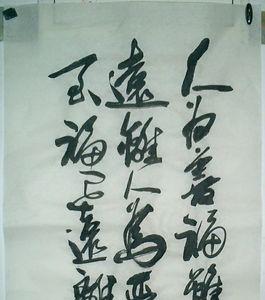 人为善福雖
遠離人為恶
至福已遠離